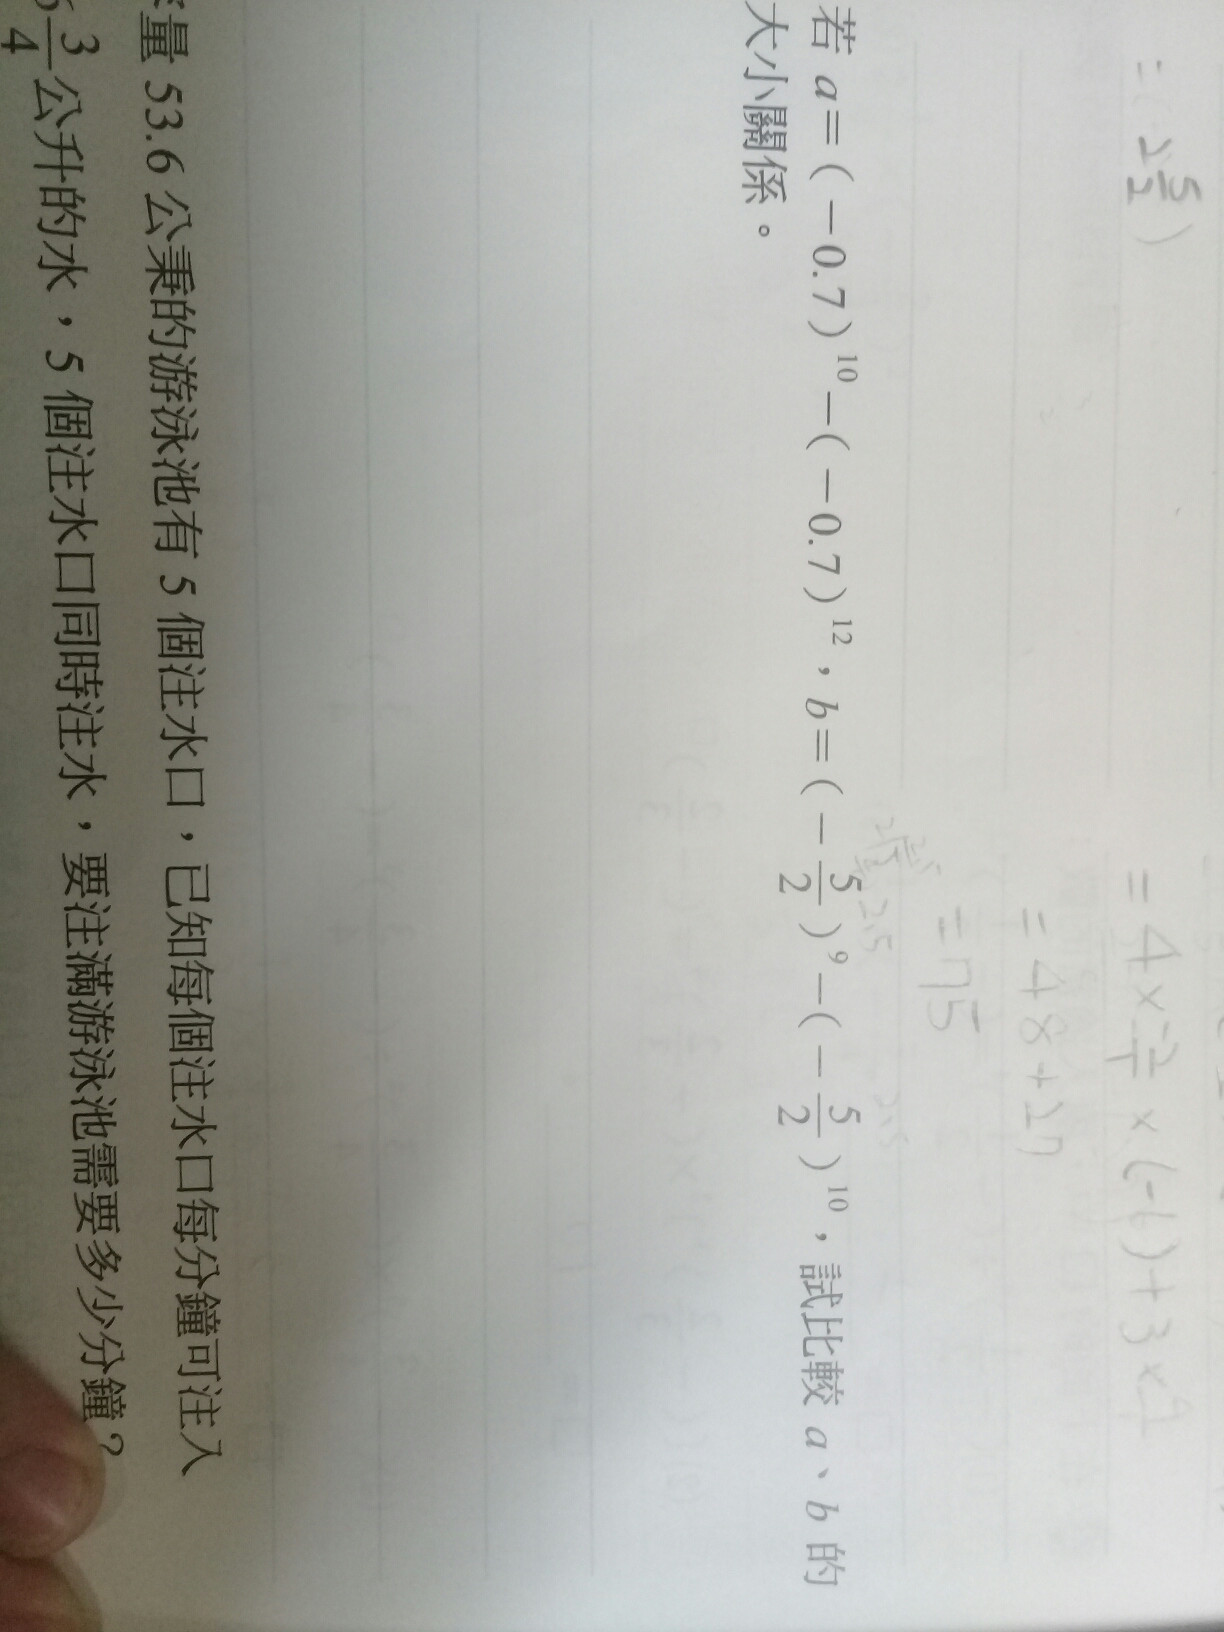 2 5/2 )
= 4 × × (-6) + 3 ×
= 48 + 27
= 75
若 a=(-0.7)¹⁰-(-0.7)¹²，b=(-5/2)⁹-(-5/2)¹⁰，試比較 a、b 的
大小關係。
量 53.6 公秉的游泳池有 5 個注水口，已知每個注水口每分鐘可注入
3/4 公升的水，5 個注水口同時注水，要注滿游泳池需要多少分鐘？